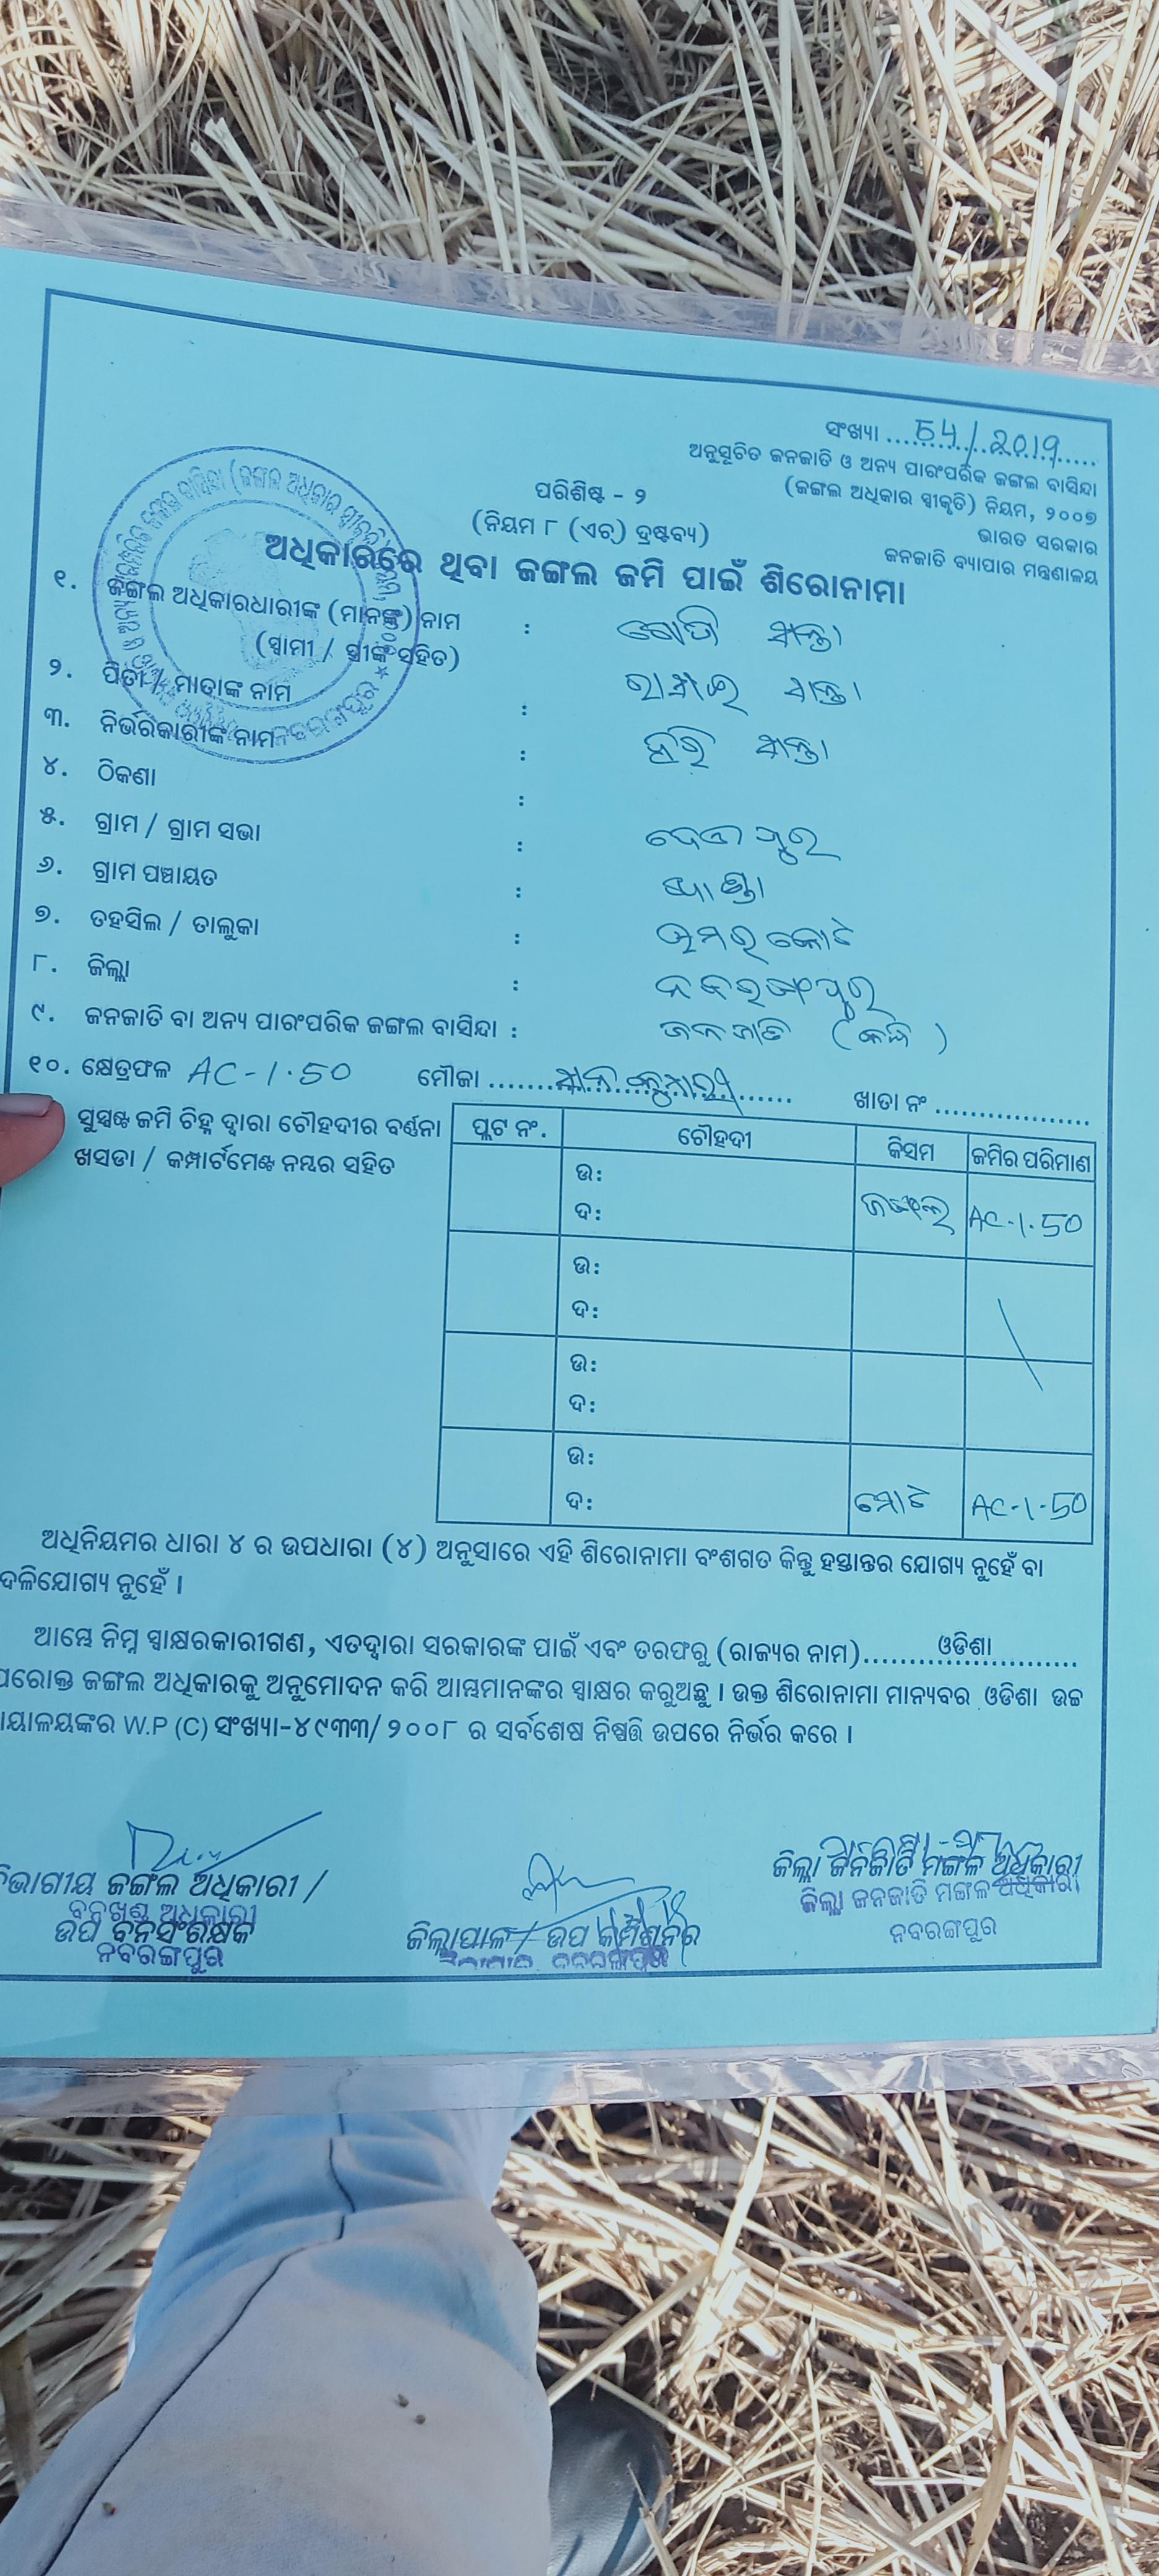 ସଂଖ୍ୟା ................ 54/2019
ଅନୁସୂଚିତ ଜନଜାତି ଓ ଅନ୍ୟ ପାରଂପରିକ ଜଙ୍ଗଲ ବାସିନ୍ଦା
(ଜଙ୍ଗଲ ଅଧିକାର ସ୍ୱୀକୃତି) ନିୟମ, ୨୦୦୭
ଭାରତ ସରକାର
ଜନଜାତି ବ୍ୟାପାର ମନ୍ତ୍ରଣାଳୟ
ପରିଶିଷ୍ଟ - ୨
(ନିୟମ ୮ (ଏଚ୍) ଦ୍ରଷ୍ଟବ୍ୟ)
ଅଧିକାରରେ ଥିବା ଜଙ୍ଗଲ ଜମି ପାଇଁ ଶିରୋନାମା
୧. ଜଙ୍ଗଲ ଅଧିକାରଧାରୀଙ୍କ (ମାନଙ୍କ) ନାମ :
(ସ୍ୱାମୀ / ସ୍ତ୍ରୀଙ୍କ ସହିତ)
୨. ପିତା / ମାତାଙ୍କ ନାମ :
୩. ନିର୍ଭରକାରୀଙ୍କ ନାମ : ହରି
୪. ଠିକଣା :
୫. ଗ୍ରାମ / ଗ୍ରାମ ସଭା :
୬. ଗ୍ରାମ ପଞ୍ଚାୟତ :
୭. ତହସିଲ / ତାଲୁକା : ଉମରକୋଟ
୮. ଜିଲ୍ଲା : ନବରଙ୍ଗପୁର
୯. ଜନଜାତି ବା ଅନ୍ୟ ପାରଂପରିକ ଜଙ୍ଗଲ ବାସିନ୍ଦା : ଜନଜାତି
୧୦. କ୍ଷେତ୍ରଫଳ AC-1.50 ମୌଜା ................ ଖାତା ନଂ ................
ସୁସ୍ପଷ୍ଟ ଜମି ଚିହ୍ନ ଦ୍ୱାରା ଚୌହଦୀର ବର୍ଣନା
ଖସଡା / କମ୍ପାର୍ଟମେଣ୍ଟ ନମ୍ବର ସହିତ
ପ୍ଲଟ ନଂ. ଚୌହଦୀ କିସମ ଜମିର ପରିମାଣ
ଉ:
ଦ: ଜଙ୍ଗଲ AC-1.50
ଉ:
ଦ:
ଉ:
ଦ:
ଉ:
ଦ: ମୋଟ AC-1-50
ଅଧିନିୟମର ଧାରା ୪ ର ଉପଧାରା (୪) ଅନୁସାରେ ଏହି ଶିରୋନାମା ବଂଶଗତ କିନ୍ତୁ ହସ୍ତାନ୍ତର ଯୋଗ୍ୟ ନୁହେଁ ବା
ଦଳିଯୋଗ୍ୟ ନୁହେଁ ।
ଆମ୍ଭେ ନିମ୍ନ ସ୍ୱାକ୍ଷରକାରୀଗଣ, ଏତଦ୍ୱାରା ସରକାରଙ୍କ ପାଇଁ ଏବଂ ତରଫରୁ (ରାଜ୍ୟର ନାମ)........ଓଡିଶା........
ପରୋକ୍ତ ଜଙ୍ଗଲ ଅଧିକାରକୁ ଅନୁମୋଦନ କରି ଆମ୍ଭମାନଙ୍କର ସ୍ୱାକ୍ଷର କରୁଅଛୁ । ଉକ୍ତ ଶିରୋନାମା ମାନ୍ୟବର ଓଡିଶା ଉଚ୍ଚ
ାୟାଳୟଙ୍କର W.P (C) ସଂଖ୍ୟା-୪୯୩୩/ ୨୦୦୮ ର ସର୍ବଶେଷ ନିଷ୍ପତ୍ତି ଉପରେ ନିର୍ଭର କରେ ।
ବିଭାଗୀୟ ଜଙ୍ଗଲ ଅଧିକାରୀ /
ବନଖଣ୍ଡ ଅଧିକାରୀ
ଉପ ବନସଂରକ୍ଷକ
ନବରଙ୍ଗପୁର
ଜିଲ୍ଲାପାଳ / ଉପ କମିଶନର
ଜିଲ୍ଲା ଜନଜାତି ମଙ୍ଗଳ ଅଧିକାରୀ
ଜିଲ୍ଲା ଜନଜାତି ମଙ୍ଗଳ ଅଧିକାରୀ
ନବରଙ୍ଗପୁର